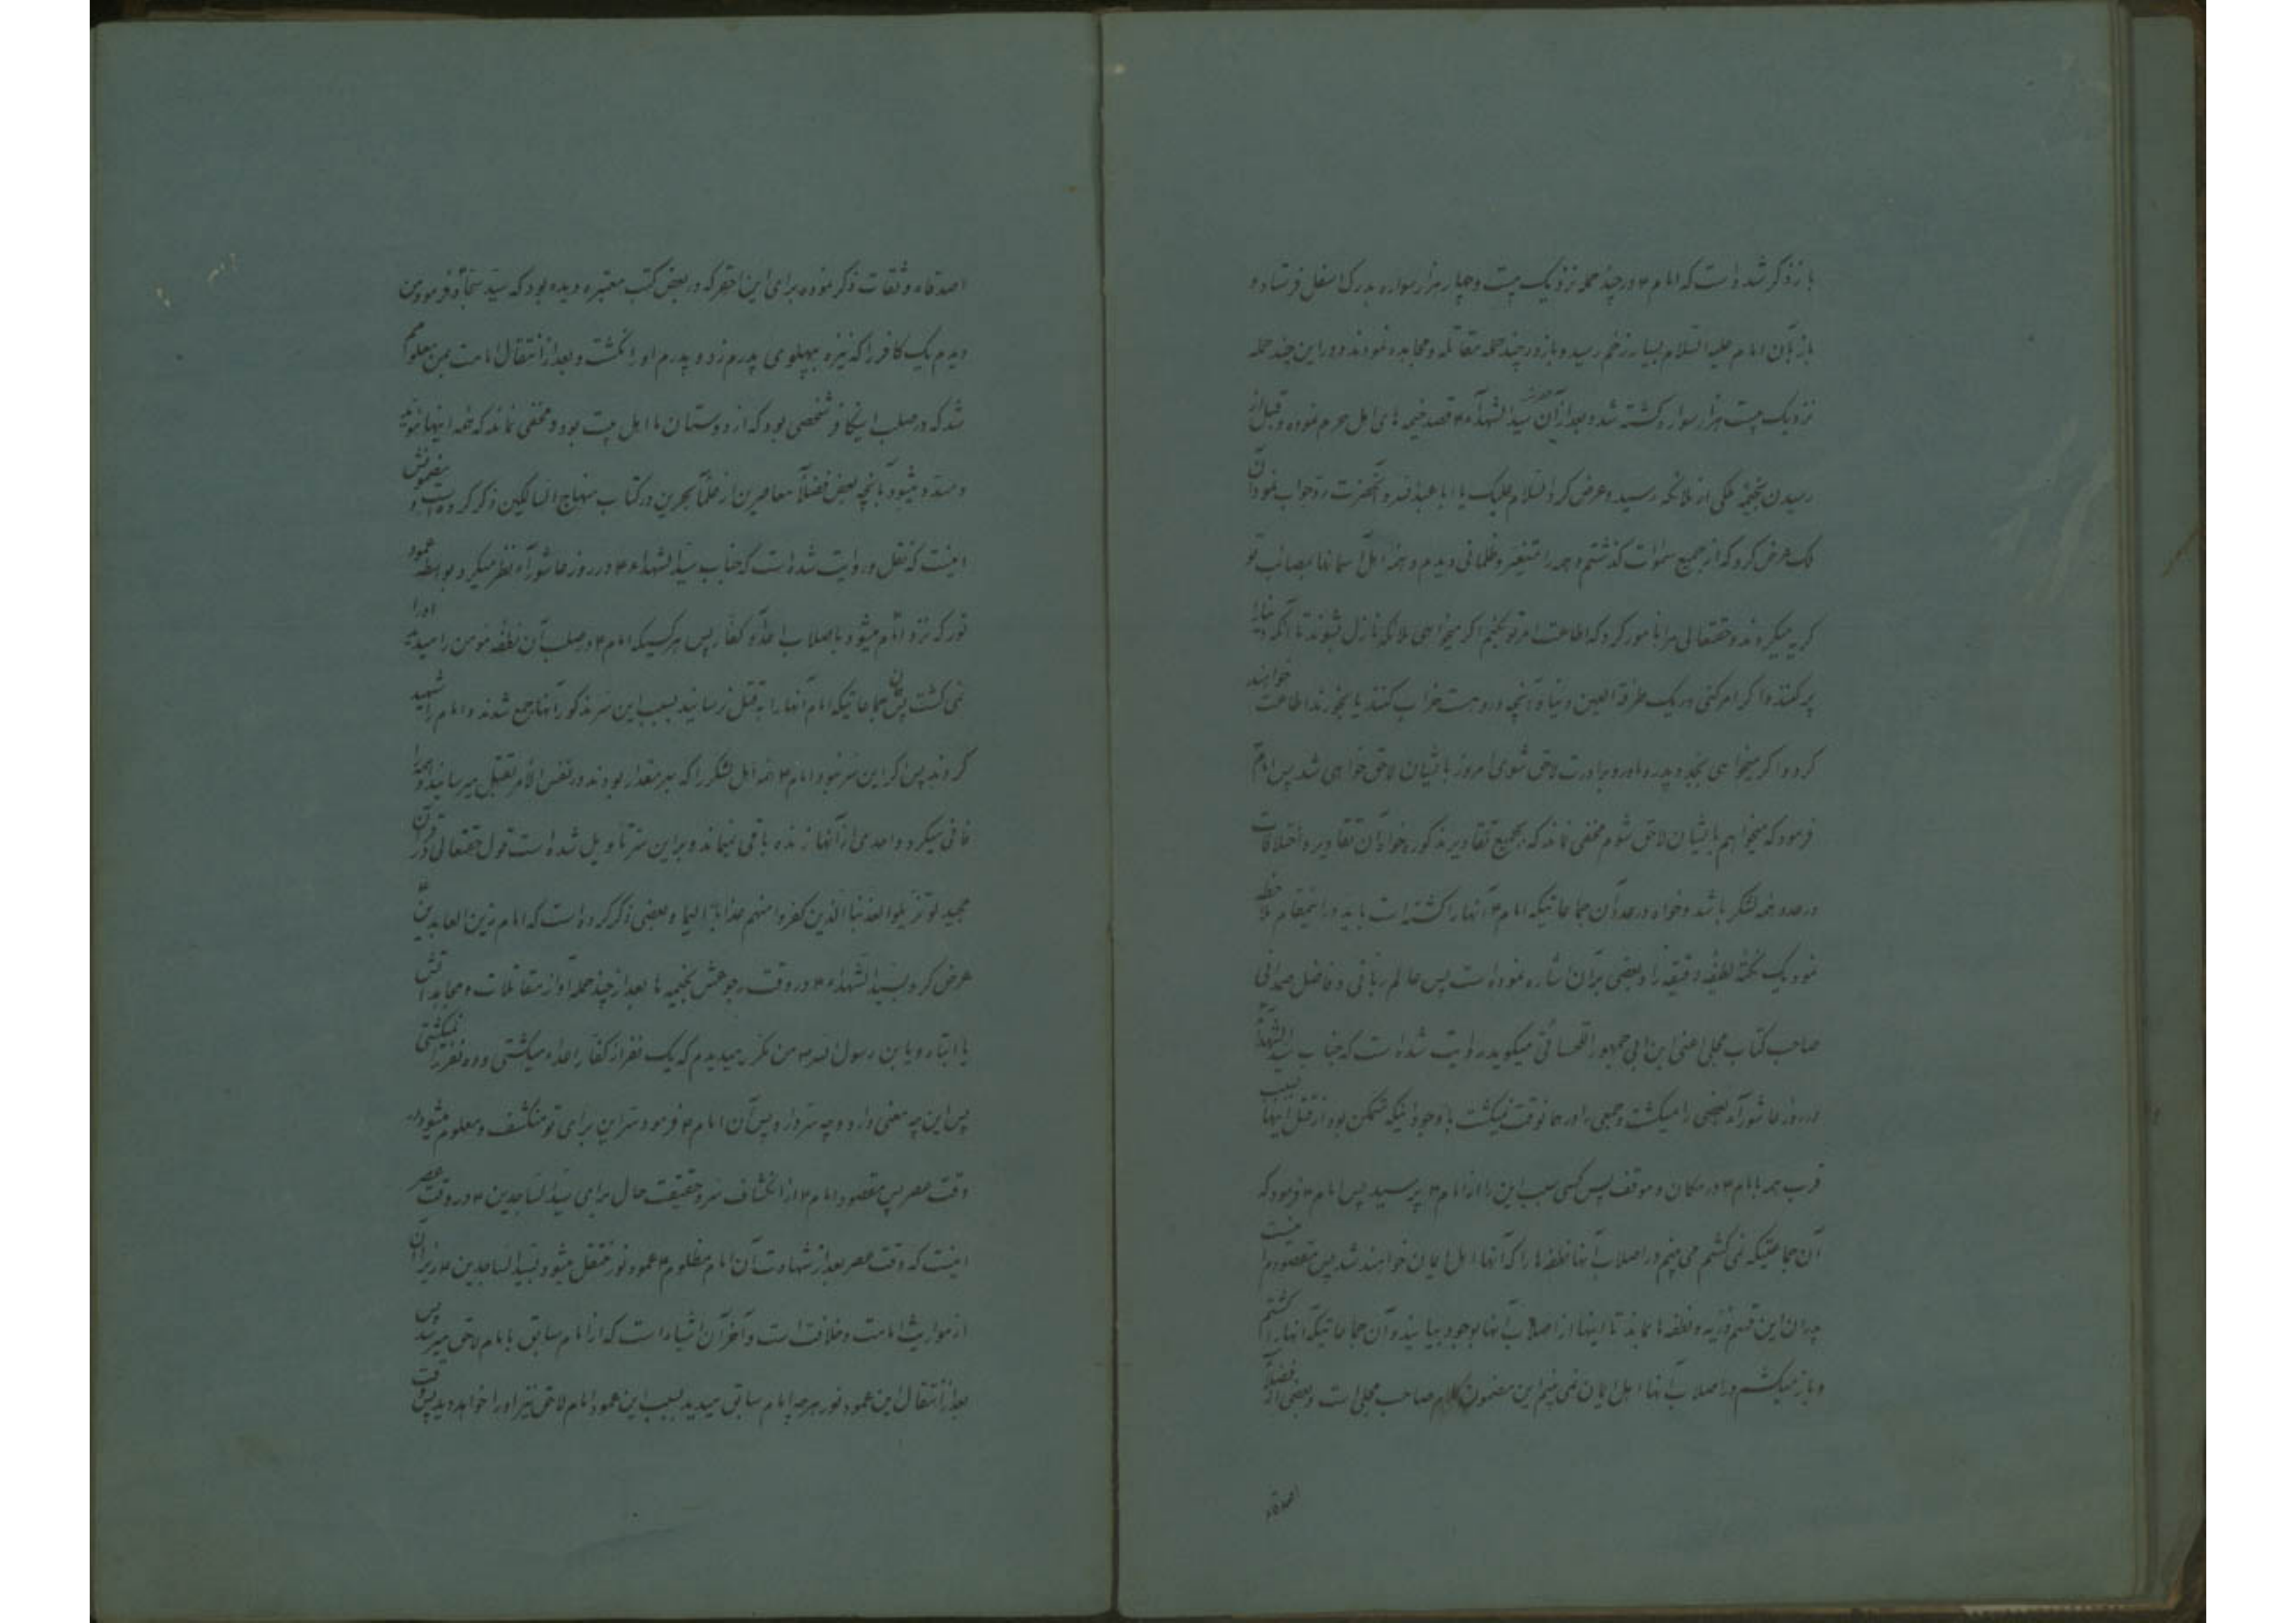 باز ذکر شده است که امام ۴ در چند حمله نزدیک بیست و چهار هزار سواره بدرک اسفل فرستاد و
باز بآن امام علیه السلام بسیار زخم رسید و باز در چند حمله مقاتله و مجاهده نمودند و در این چند حمله
نزدیک بیست هزار سوار کشته شد و بعد از آن حضرت سید الشهدآء ۴ قصد خیمه های اهل حرم نموده و قبل از
رسیدن بخیمه ملکی از ملائکه رسید و عرض کرد السلام علیک یا ابا عبد الله و آنحضرت رد جواب نمود آن
ملک عرض کرد که از جمیع سموات گذشتم و همه را متغیر و ظلمانی دیدم و همه اهل آسمانها بمصائب تو
گریه میکردند و حقتعالی مرا مامور کرد که اطاعت امر تو بکنم اگر میخواهی ملائکه نازل شوند تا آنکه دنیا را
پر کنند و اگر امر کنی در یک طرفة العین دنیا و آنچه در او هست خراب کنند یا بخورند اطاعت خواهند
کرد و اگر میخواهی بجد و پدر و مادر و برادرت لاحق شوی امروز بایشان لاحق خواهی شد پس امام ۴
فرمود که میخواهم بایشان لاحق شوم مخفی نماند که بجمیع تقادیر مذکوره خواه آن تقادیر و اختلافات
در عدد همه لشکر باشد و خواه در عدد آن جماعاتیکه امام ۴ آنها را کشته است باید در اینمقام ملاحظه
نمود یک نکتۀ لطیفه دقیقه را و بعضی بر آن اشاره نموده است پس عالم ربانی و فاضل صمدانی
صاحب کتاب مجلی اعنی ابن ابی جمهور الحسائی میگوید روایت شده است که جناب سید الشهدآء ۴
در روز عاشورآء بعضی را میکشت و جمعی را در همانوقت نمیکشت با وجود اینکه متمکن بود از قتل اینها بسبب
قرب همه بامام ۴ در مکان و موقف پس کسی سبب این را از امام ۴ پرسید پس امام ۴ فرمود که
آن جماعتیکه نمی کشتم می بینم در اصلاب آنها نطفه ها را که آنها اهل ایمان خواهند شد پس مقصودم اینست
این قسم ذریه و نطفه ها بماند تا اینها از اصلاب آنها بوجود بیایند و آن جماعاتیکه آنها را کشتم
و باز میکشم در اصلاب آنها اهل ایمان نمی بینم این مضمون کلام صاحب مجلی است و بعضی از فضلآء
اصدقاء
اصدقاء و ثقات ذکر نموده برای این احقر که در بعض کتب معتبره دیده بود که سید سجاد فرمود من
دیدم یک کافر را که نیزه بپهلوی پدرم زد و پدرم او را نکشت و بعد از انتقال امامت بمن معلومم
شد که در صلب اینکافر شخصی بود که از دوستان ما اهل بیت بود و مخفی نماند که همه اینها مؤید
و مسدد میشود بآنچه بعض فضلآء معاصرین از علمآء بحرین در کتاب منهاج السالکین ذکر کرده است و مضمونش
اینست که نقل و روایت شده است که جناب سید الشهدآء ۴ در روز عاشورآء نظر میکرد بواسطه عمود
نور که نزد امام میشود باصلاب اعداء کفار پس هر کسیکه امام ۴ در صلب آن نطفه مومن را میدید او را
نمی کشت پس آن جماعاتیکه امام آنها را بقتل نرسانید بسبب این سر مذکور آنها جمع شدند و امام را شهید
کردند پس اگر این سر نبود امام ۴ همه اهل لشکر را که بهر مقدار بودند در نفس الأمر بقتل میرسانید و همه را
فانی میکرد و احدی از آنها زنده باقی نمیماند و براین سر تاویل شده است قول حقتعالی در قرآن
مجید لو تزیلوا لعذبنا الذین کفروا منهم عذابا الیما و بعضی ذکر کرده است که امام زین العابدین ۴
عرض کرد بسید الشهدآء ۴ در وقت رجوعش بخیمه ها بعد از چند حمله او از مقاتلات و مجاهداتش
یا ابتاه و یا بن رسول الله من مکرر میدیدم که یک نفر از کفار اعداء میکشتی و ده نفر را نمیکشتی
پس این چه معنی دارد و چه سر دارد پس آن امام ۴ فرمود سر این برای تو منکشف و معلوم میشود در
وقت عصر پس مقصود امام ۴ از انکشاف سر و حقیقت حال برای سید الساجدین ۴ در وقت عصر
اینست که وقت عصر بعد از شهادت آن امام مظلوم ۴ عمود نور منتقل میشود بسید الساجدین ۴ زیرا آن
از مواریث امامت و خلافت است و آخر آن اشیاء است که از امام سابق بامام لاحق میرسد پس
بعد از انتقال این عمود نور هر چه امام سابق میدید بسبب این عمود امام لاحق نیز او را خواهد دید پس وقت